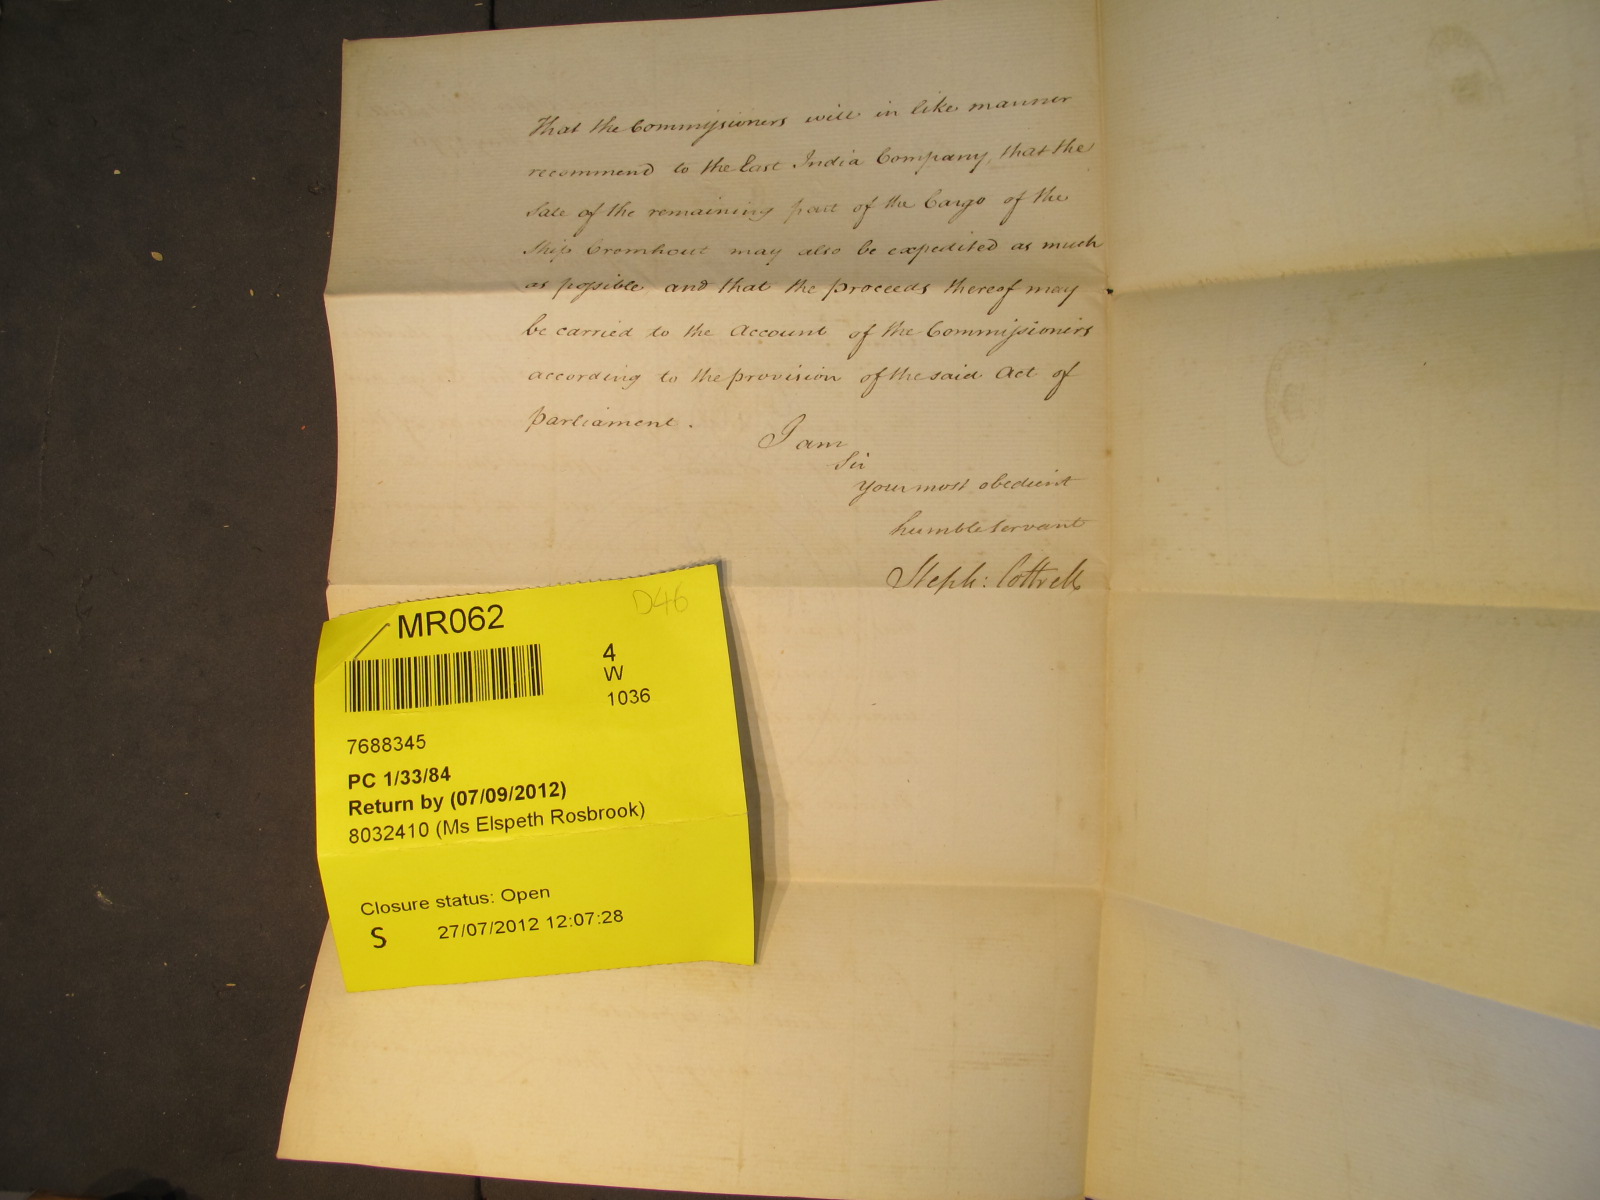 That the Commissioners will in like manner
recommend to the East India Company, that the
Sale of the remaining part of the Cargo of the
Ship Cromhout may also be expedited as much
as possible, and that the proceeds thereof may
be carried to the Account of the Commissioners
according to the provision of the said Act of
Parliament.
I am
Sir
Your most obedient
humble Servant
Steph: Cottrell
D46
MR062
4
W
1036
7688345
PC 1/33/84
Return by (07/09/2012)
8032410 (Ms Elspeth Rosbrook)
Closure status: Open
S 27/07/2012 12:07:28